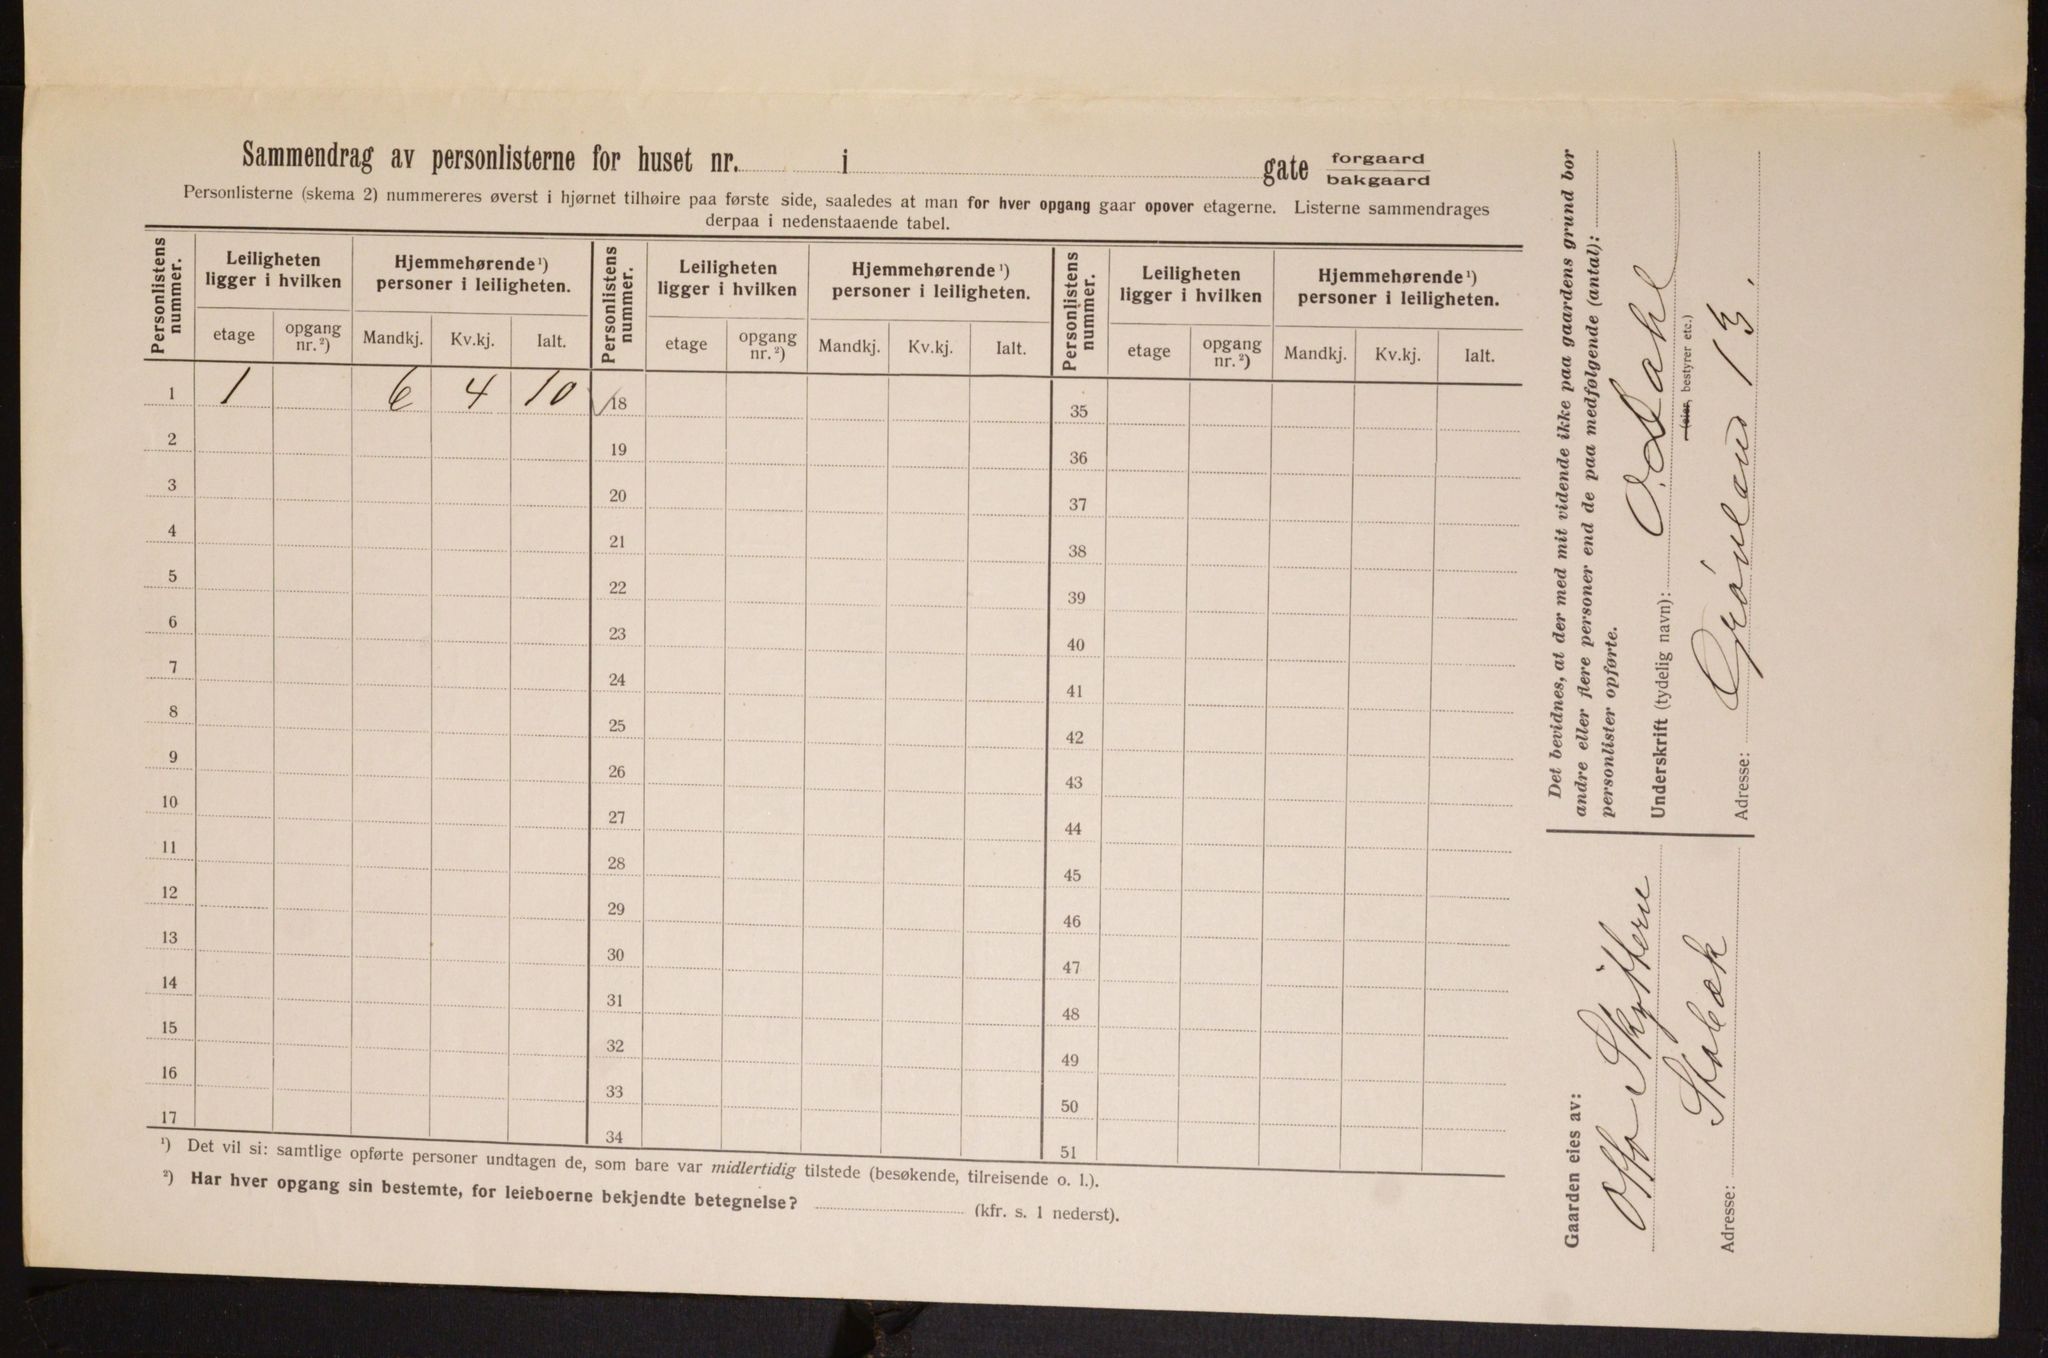 Sammendrag av personlisterne for huset nr. i gate forgaard bakgaard
Personlisterne (skema 2) nummereres øverst i hjørnet tilhøire paa første side, saaledes at man for hver opgang gaar opover etagerne. Listerne sammendrages
derpaa i nedenstaaende tabel.
Personlistens nummer. Leiligheten ligger i hvilken Hjemmehørende¹) personer i leiligheten. Personlistens nummer. Leiligheten ligger i hvilken Hjemmehørende¹) personer i leiligheten. Personlistens nummer. Leiligheten ligger i hvilken Hjemmehørende¹) personer i leiligheten.
etage opgang nr.²) Mandkj. Kv.kj. Ialt. etage opgang nr.²) Mandkj. Kv.kj. Ialt. etage opgang nr.²) Mandkj. Kv.kj. Ialt.
1 1 6 4 10 18 35
2 19 36
3 20 37
4 21 38
5 22 39
6 23 40
7 24 41
8 25 42
9 26 43
10 27 44
11 28 45
12 29 46
13 30 47
14 31 48
15 32 49
16 33 50
17 34 51
¹) Det vil si: samtlige opførte personer undtagen de, som bare var midlertidig tilstede (besøkende, tilreisende o. l.).
²) Har hver opgang sin bestemte, for leieboerne bekjendte betegnelse? (kfr. s. 1 nederst).
Det bevidnes, at der med mit vidende ikke paa gaardens grund bor
andre eller flere personer end de paa medfølgende (antal):
personlister opførte.
Underskrift (tydelig navn): O. Dahl
(eier, bestyrer etc.)
Adresse: Grönland 13.
Gaarden eies av:
Otto Skyttern
Adresse: Stabæk